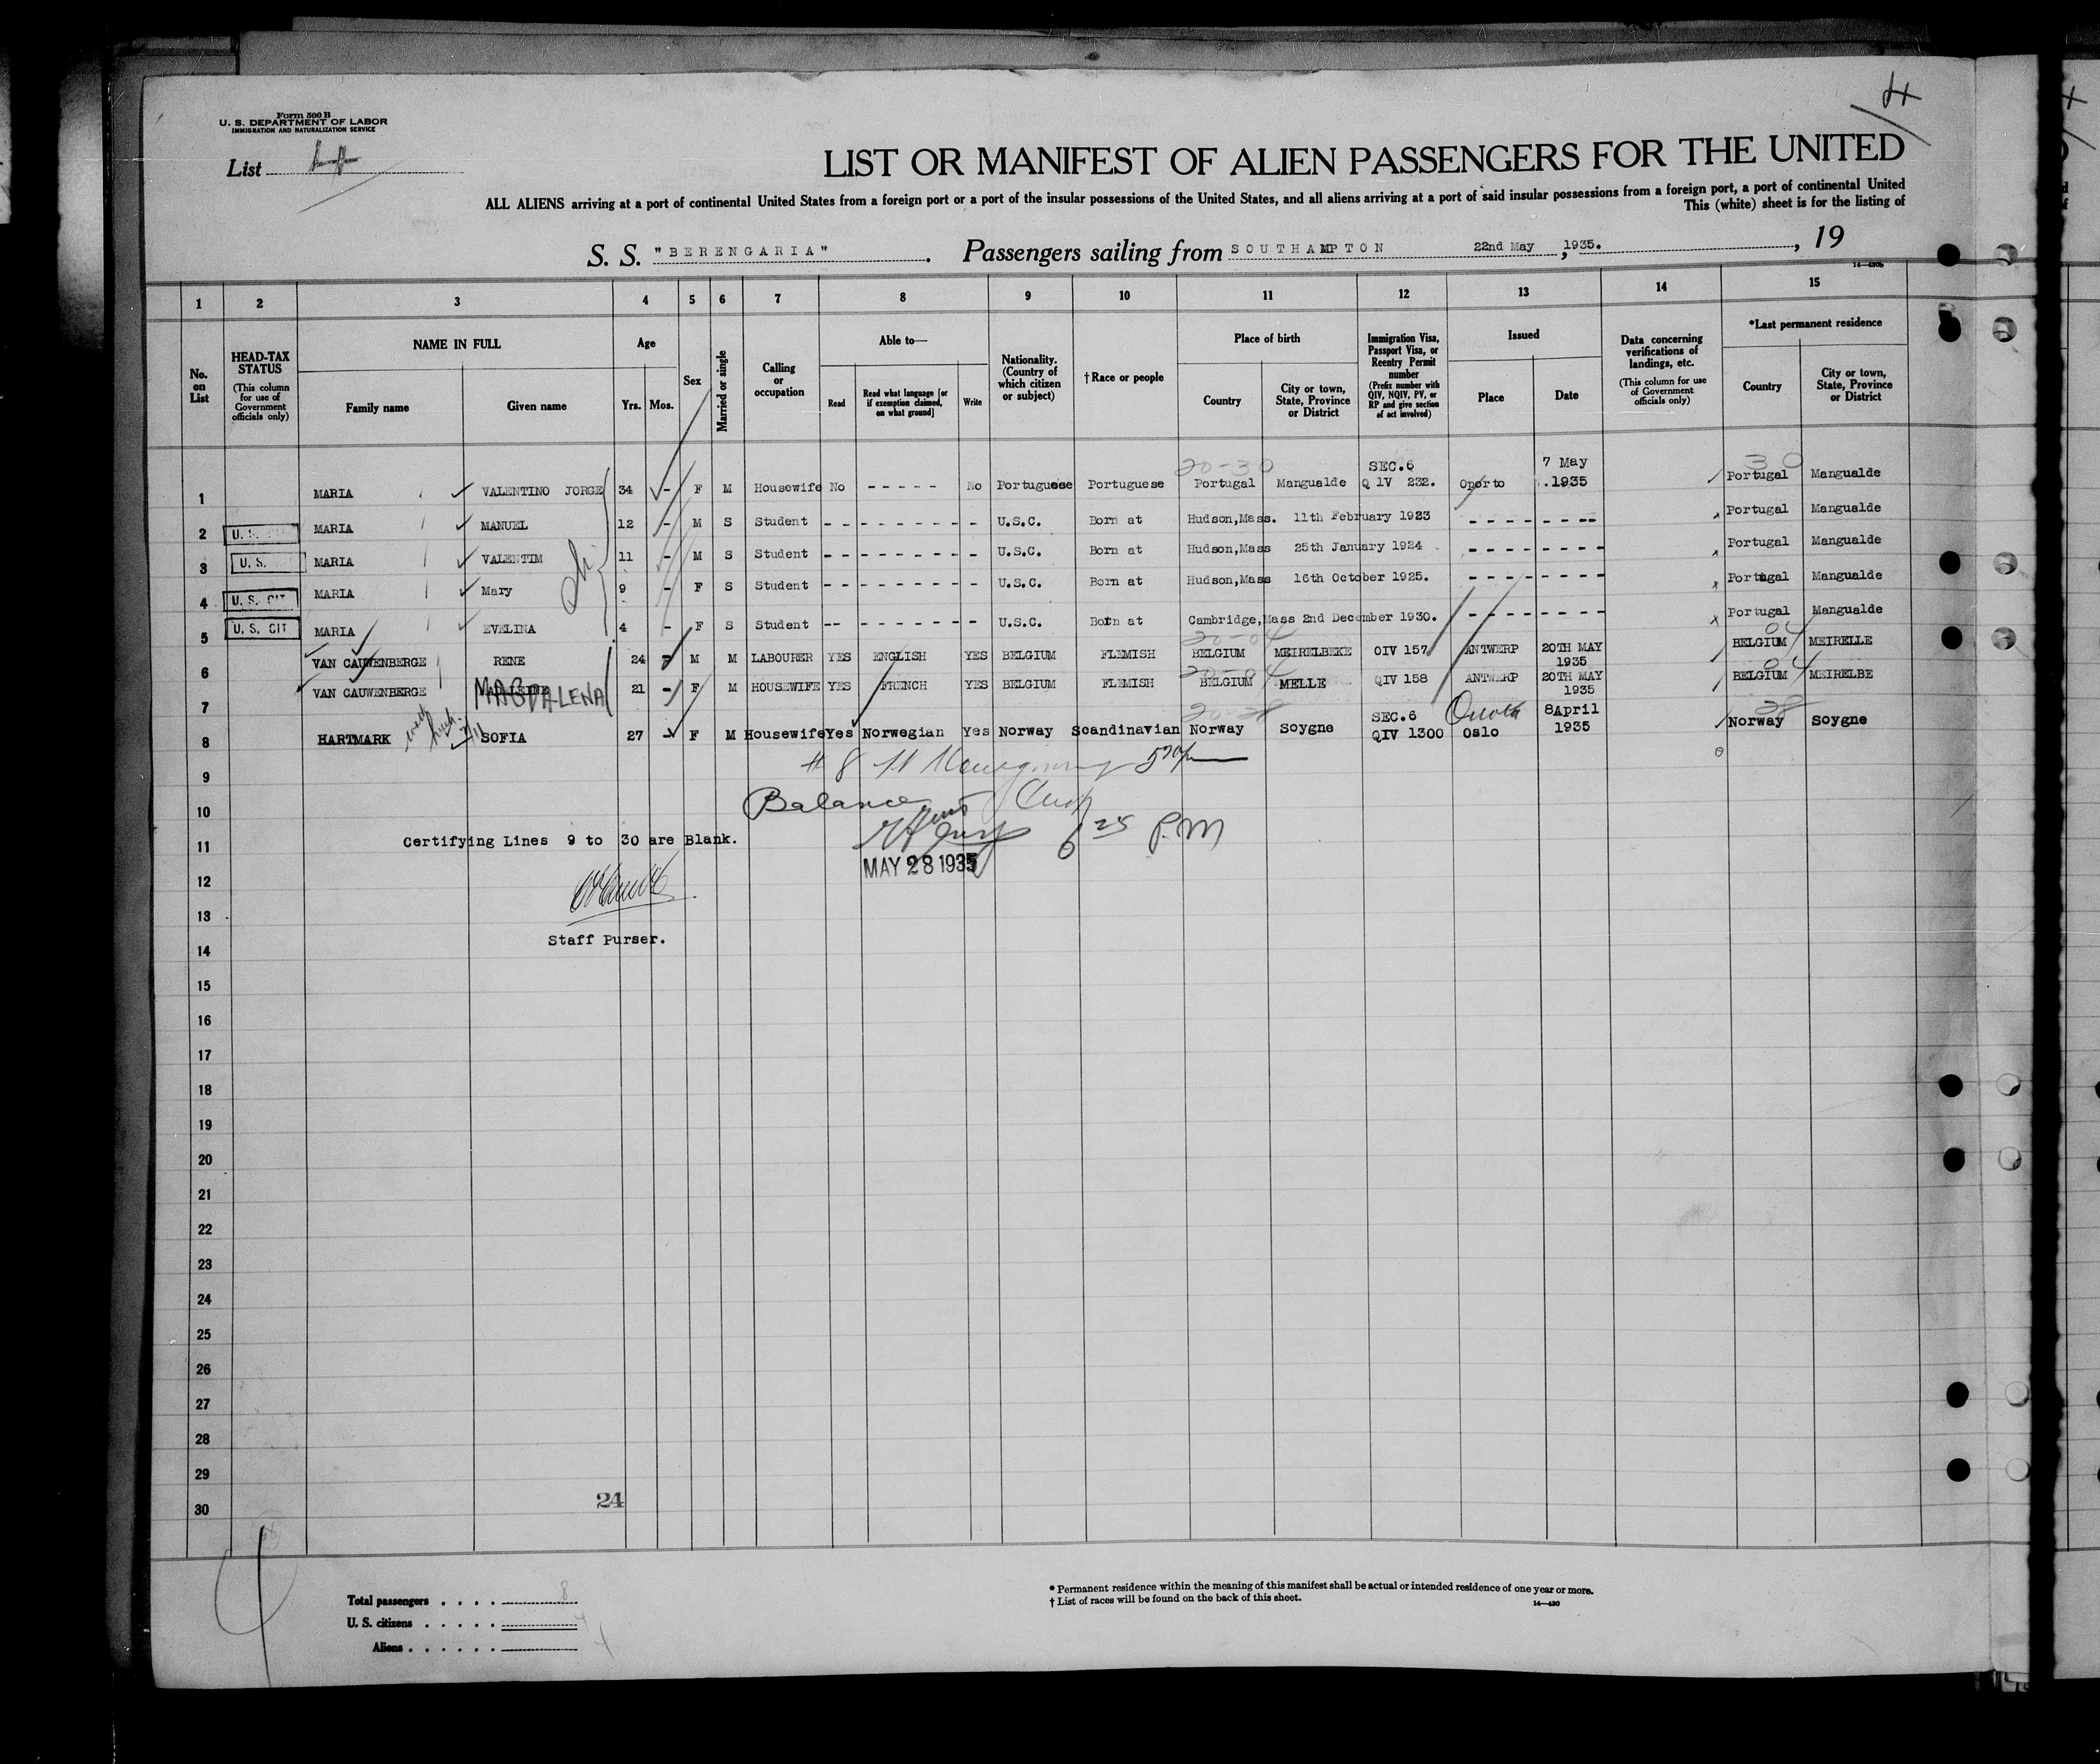 4
Form 500 B
U. S. DEPARTMENT OF LABOR
IMMIGRATION AND NATURALIZATION SERVICE
List 4
LIST OR MANIFEST OF ALIEN PASSENGERS FOR THE UNITED
ALL ALIENS arriving at a port of continental United States from a foreign port or a port of the insular possessions of the United States, and all aliens arriving at a port of said insular possessions from a foreign port, a port of continental United
This (white) sheet is for the listing of
S. S. "BERENGARIA". Passengers sailing from SOUTHAMPTON 22nd May, 1935. , 19
1 2 3 4 5 6 7 8 9 10 11 12 13 14 15
No. on List
HEAD-TAX STATUS (This column for use of Government officials only)
NAME IN FULL Family name Given name
Age Yrs. Mos.
Sex
Married or single
Calling or occupation
Able to— Read Read what language [or if exemption claimed, on what ground] Write
Nationality. (Country of which citizen or subject)
†Race or people
Place of birth Country City or town, State, Province or District
Immigration Visa, Passport Visa, or Reentry Permit number (Prefix number with QIV, NQIV, PV, or RP and give section of act involved)
Issued Place Date
Data concerning verifications of landings, etc. (This column for use of Government officials only)
*Last permanent residence Country City or town, State, Province or District
20-30 SEC.6 7 May 30
1 MARIA VALENTINO JORGE 34 - F M Housewife No - - - - - No Portuguese Portuguese Portugal Mangualde Q 1V 232. Oporto .1935 Portugal Mangualde
2 U. S. MARIA MANUEL 12 - M S Student - - - - - - - - - U.S.C. Born at Hudson,Mass. 11th February 1923 - - - - - - - - Portugal Mangualde
3 U. S. MARIA VALENTIM 11 - M S Student - - - - - - - - - U.S.C. Born at Hudson,Mass 25th January 1924 - - - - - - - - Portugal Mangualde
4 U. S. CIT MARIA Mary 9 - F S Student - - - - - - - - - U.S.C. Born at Hudson,Mass 16th October 1925. - - - - - - - - Portugal Mangualde
5 U. S. CIT MARIA EVELINA 4 - F S Student -- - - - - - - - U.S.C. Born at Cambridge,Mass 2nd December 1930. - - - - - - - - Portugal Mangualde
20-04 04
6 VAN CAUWENBERGE RENE 24 - M M LABOURER YES ENGLISH YES BELGIUM FLEMISH BELGIUM MEIRELBEKE QIV 157 ANTWERP 20TH MAY 1935 BELGIUM MEIRELLE
20-04 04
7 VAN CAUWENBERGE MAGDALENA 21 - F M HOUSEWIFE YES FRENCH YES BELGIUM FLEMISH BELGIUM MELLE QIV 158 ANTWERP 20TH MAY 1935 BELGIUM MEIRELBE
20-28 SEC.6 Quota 8April 28
8 HARTMARK SOFIA 27 - F M Housewife Yes Norwegian Yes Norway Scandinavian Norway Soygne QIV 1300 Oslo 1935 Norway Soygne
9
10 Balance
Certifying Lines 9 to 30 are Blank. 6 25 P.M
11
MAY 28 1935
12
13
Staff Purser.
14
15
16
17
18
19
20
21
22
23
24
25
26
27
28
29
24
30
Total passengers . . . . 8
U. S. citizens . . . . . 4
Aliens . . . . . . 4
* Permanent residence within the meaning of this manifest shall be actual or intended residence of one year or more.
† List of races will be found on the back of this sheet.
14—430